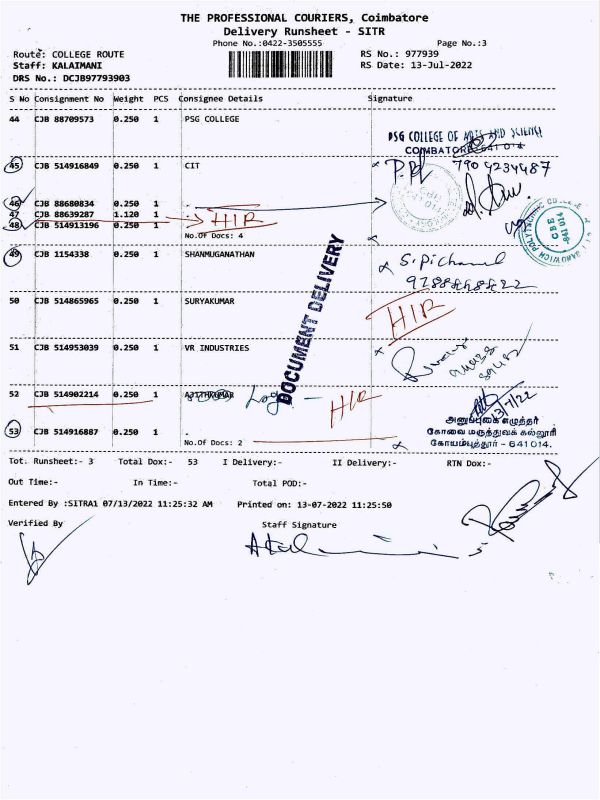 THE PROFESSIONAL COURIERS, Coimbatore
Delivery Runsheet - SITR
Phone No.:0422-3505555 Page No.:3
Route: COLLEGE ROUTE RS No.: 977939
Staff: KALAIMANI RS Date: 13-Jul-2022
DRS No.: DCJB97793903
S No Consignment No Weight PCS Consignee Details Signature
44 CJB 88709573 0.250 1 PSG COLLEGE
PSG COLLEGE OF ARTS AND SCIENCE
COIMBATORE 641 014
45 CJB 514916849 0.250 1 CIT
7904234487
46 CJB 88680834 0.250 1 .
47 CJB 88639287 1.120 1 . HIR
48 CJB 514913196 0.250 1 .
No.Of Docs: 4
49 CJB 1154338 0.250 1 SHANMUGANATHAN
DOCUMENT DELIVERY
50 CJB 514865965 0.250 1 SURYAKUMAR HIR
51 CJB 514953039 0.250 1 VR INDUSTRIES
52 CJB 514902214 0.250 1 AJITHKUMAR HIR
13/7/22
அனுப்புகை எழுத்தர்
53 CJB 514916887 0.250 1 .
கோவை மருத்துவக் கல்லூரி
No.Of Docs: 2
கோயம்புத்தூர் - 641014.
Tot. Runsheet:- 3 Total Dox:- 53 I Delivery:- II Delivery:- RTN Dox:-
Out Time:- In Time:- Total POD:-
Entered By :SITRA1 07/13/2022 11:25:32 AM Printed on: 13-07-2022 11:25:50
Verified By Staff Signature